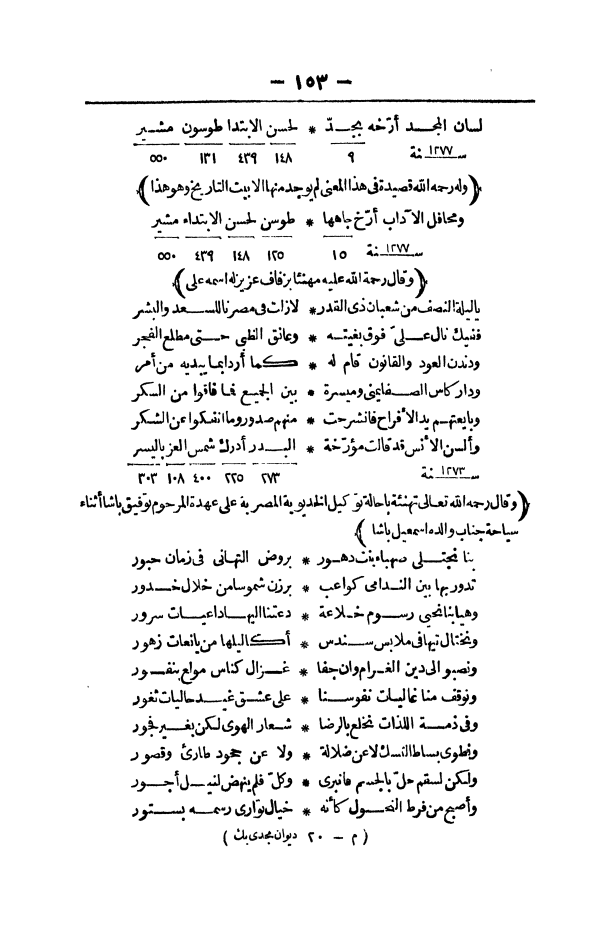 — ١٥٣ —
لسان المجد أرّخه بمجدّ * لحسن الابتدا طوسون مشير
سنة ١٢٧٧ ٩ ١٤٨ ٤٣٩ ١٣١ ٥٥٠
(وله رحمه الله قصيدة فى هذا المعنى لم يوجد منها الا بيت التاريخ وهو هذا)
ومحافل الآداب أرّخ جاهها * طوسن لحسن الابتداء مشير
سنة ١٢٧٧ ١٥ ١٢٥ ١٤٨ ٤٣٩ ٥٥٠
(وقال رحمة الله عليه مهنئا بزفاف عزيز له اسمه على)
يا ليلة النصف من شعبان ذى القدر * لازلت فى مصرنا للسعد والبشر
ففيك نال علىّ فوق بغيته * وعانق الظبى حتى مطلع الفجر
ودندن العود والقانون قام له * كما أراد بما يبديه من أمر
ودار كاس الصفا يمنى وميسرة * بين الجميع فما فاقوا من السكر
وبايعتهم يد الأفراح فانشرحت * منهم صدور وما انفكوا عن الشكر
وألسن الأنس قد قالت مؤرّخة * البدر أدرك شمس العز باليسر
سنة ١٢٧٣ ٢٧٣ ٢٢٥ ٤٠٠ ١٠٨ ٣٠٣
(وقال رحمه الله تعالى تهنئة باحالة توكيل الخديوية المصرية على عهدة المرحوم توفيق باشا أثناء
سياحة جناب والده اسمعيل باشا)
بنا نجتلى صهباء بنت دهور * بروض التهانى فى زمان حبور
تدور بها بين الندامى كواعب * برزن شموسا من خلال خدور
وهيا بنا نحيى رسوم خلاعة * دعتنا اليها داعيات سرور
ونختال تيها فى ملابس سندس * أكاليلها من يانعات زهور
ونصبو الى دين الغرام وان جفا * غزال كناس مولع بنفور
ونوقف منا غاليات نفوسنا * على عشق غيد حاليات ثغور
وفى ذمة اللذات نخلع بالرضا * شعار الهوى لكن بغير فجور
ونطوى بساط النسك لا عن ضلالة * ولا عن جحود طارئ وقصور
ولكن لسقم حلّ بالجسم فانبرى * وكلّ فلم ينهض لنيل أجور
وأصبح من فرط النحول كأنه * خيال توارى رسمه بستور
( م — ٢٠ ديوان مجدى بك )